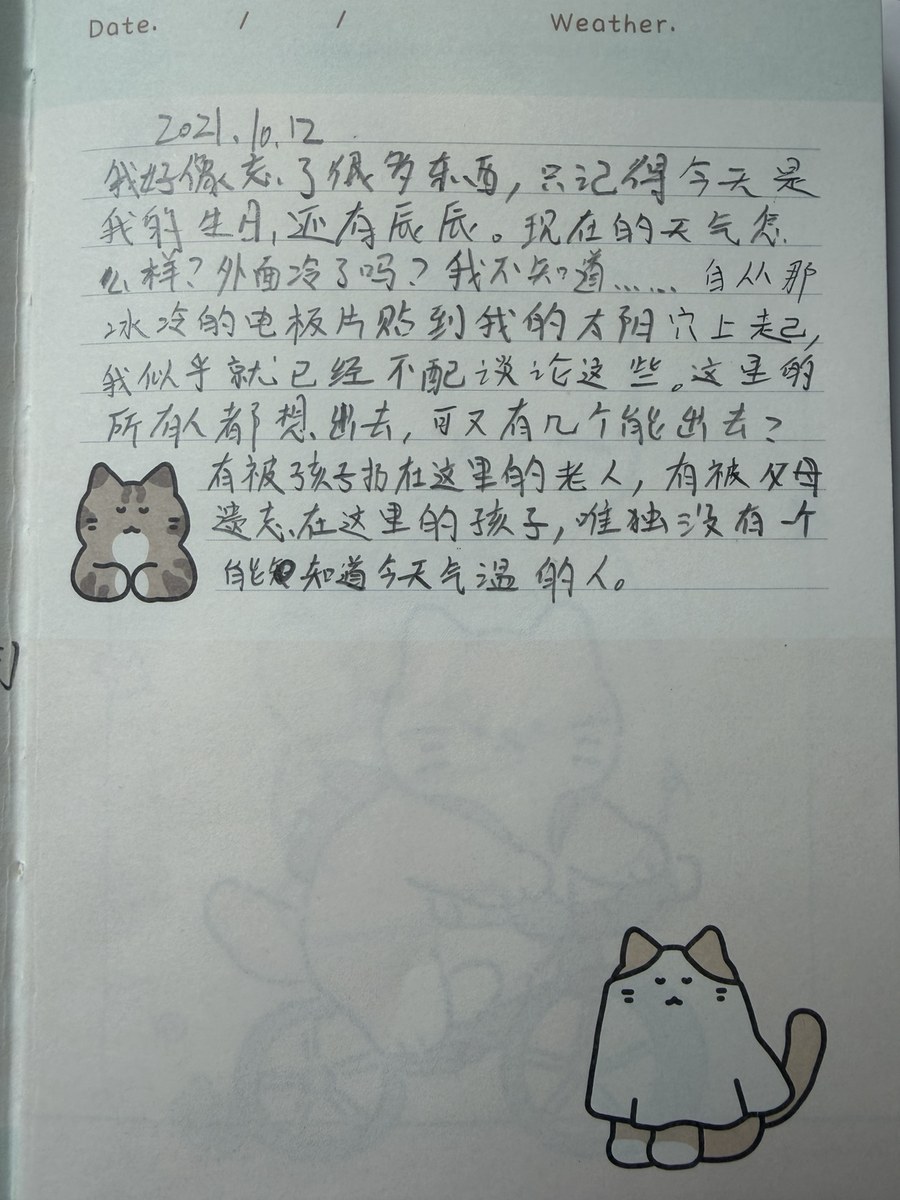 Date. / / Weather.
2021.10.12
我好像忘了很多东西，只记得今天是
我的生日，还有辰辰。现在的天气怎
么样？外面冷了吗？我不知道…… 自从那
冰冷的电极片贴到我的太阳穴上起，
我似乎就已经不配谈论这些。这里的
所有人都想出去，可又有几个能出去？
有被孩子扔在这里的老人，有被父母
遗忘在这里的孩子，唯独没有一个
能知道今天气温的人。